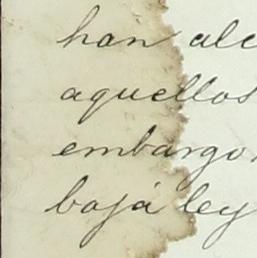 han alc
aquellos
embargo
bajá ley